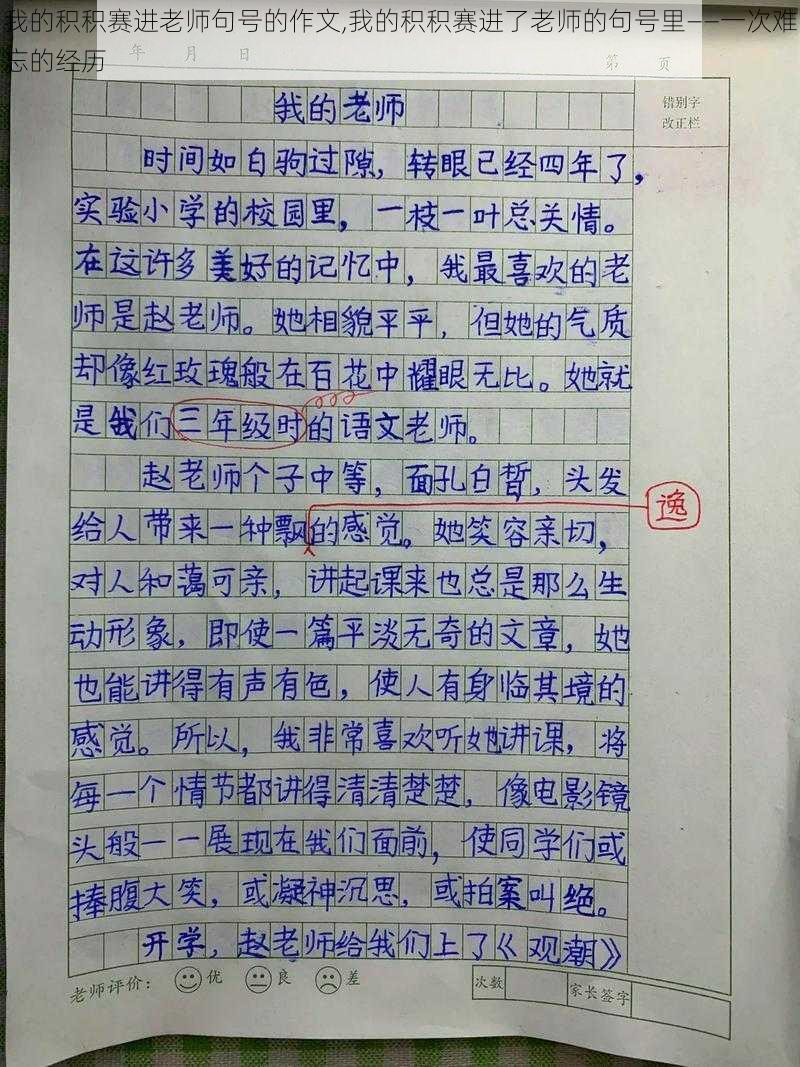 我的积积赛进老师句号的作文,我的积积赛进了老师的句号里——一次难
忘的经历
年 月 日 第 页
错别字
改正栏
我的老师
时间如白驹过隙，转眼已经四年了，
实验小学的校园里，一枝一叶总关情。
在这许多美好的记忆中，我最喜欢的老
师是赵老师。她相貌平平，但她的气质
却像红玫瑰般在百花中耀眼无比。她就
是我们三年级时的语文老师。
赵老师个子中等，面孔白皙，头发
给人带来一种飘的感觉。她笑容亲切，
逸
对人和蔼可亲，讲起课来也总是那么生
动形象，即使一篇平淡无奇的文章，她
也能讲得有声有色，使人有身临其境的
感觉。所以，我非常喜欢听她讲课，将
每一个情节都讲得清清楚楚，像电影镜
头般一一展现在我们面前，使同学们或
捧腹大笑，或凝神沉思，或拍案叫绝。
开学，赵老师给我们上了《观潮》
老师评价： 优 良 差 次数 家长签字